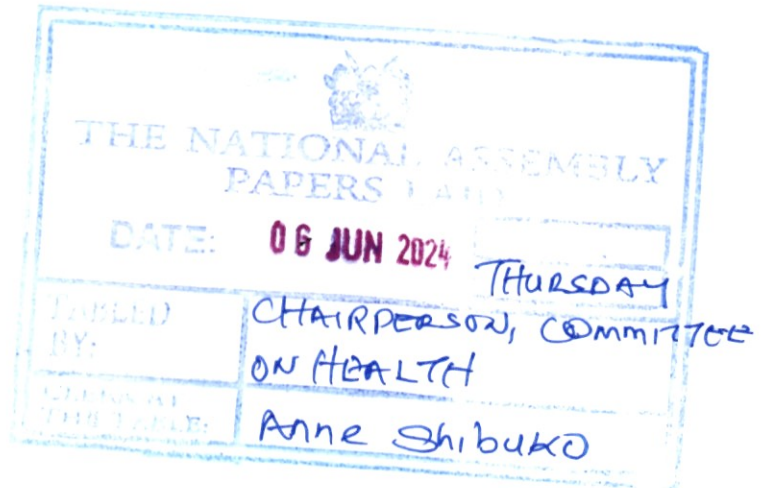 THE NATIONAL ASSEMBLY
PAPERS LAID
DATE: 06 JUN 2024
THURSDAY
TABLED
BY:
CHAIRPERSON, COMMITTEE
ON HEALTH
CLERK AT
THE TABLE:
Anne Shibuko